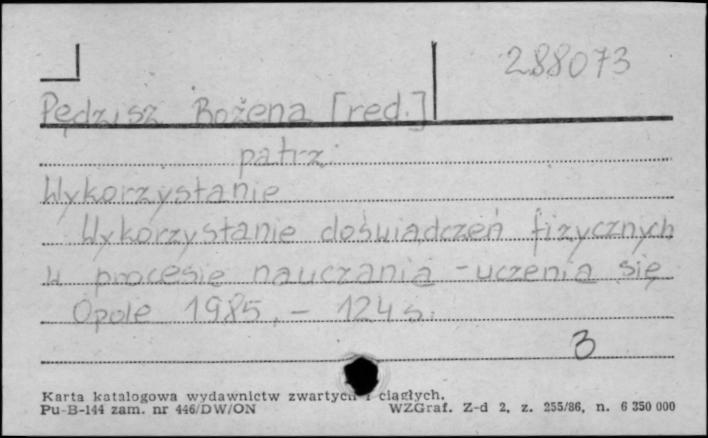 288073
Pędzisz Bożena [red.]
patrz:
Wykorzystanie
Wykorzystanie doświadczeń fizycznych
w procesie nauczania - uczenia się
Opole 1985. - 124 s.
3
Karta katalogowa wydawnictw zwartych i ciągłych.
Pu-B-144 zam. nr 446/DW/ON WZGraf. Z-d 2, z. 255/86, n. 6 350 000